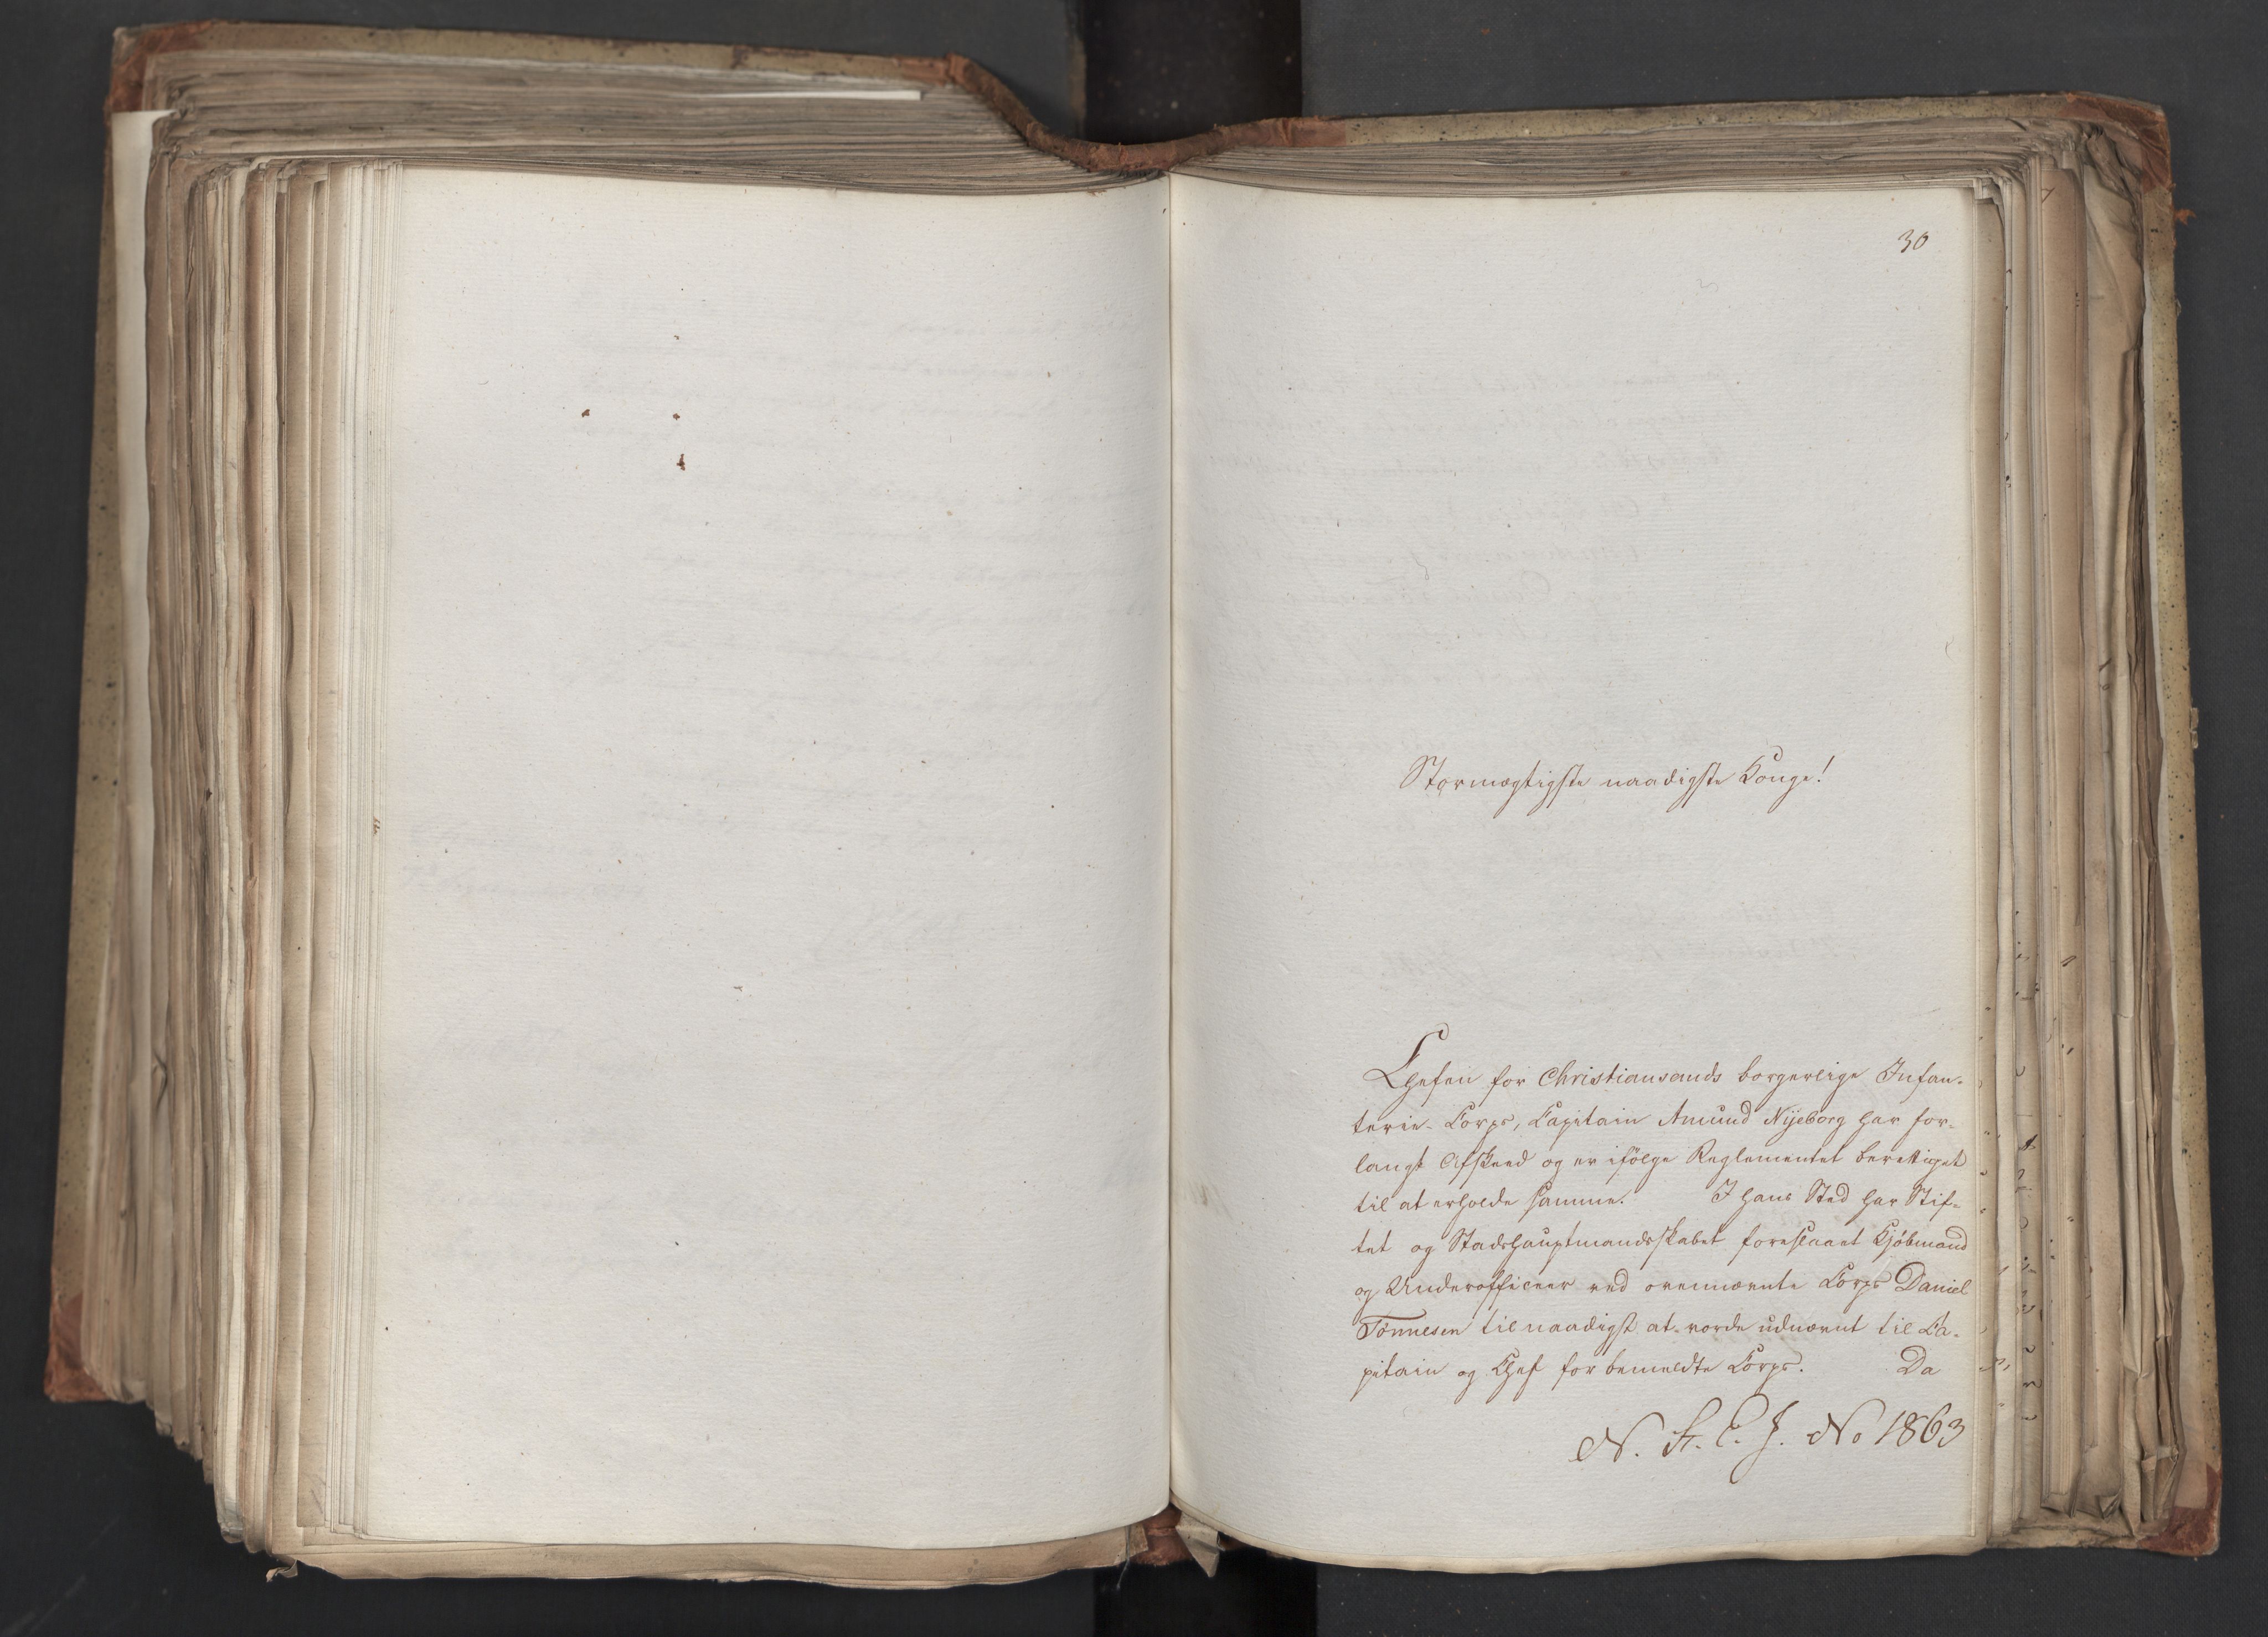 30
Stormægtigste naadigste Konge!
Chefen for Christiansands borgerlige Infan-
terie-Corps, Capitain Amund Nyeborg har for-
langt Afskeed og er ifölge Reglementet berettiget
til at erholde samme. I hans Sted har Stif-
tet og Stadshauptmandsskabet foreslaaet Kjöbmand
og Underofficeer ved ovennævnte Corps Daniel
Tönnesen til naadigst at vorde udnævnt til Ca-
pitain og Chef for bemeldte Corps. Da
N. St. E. J. No 1863